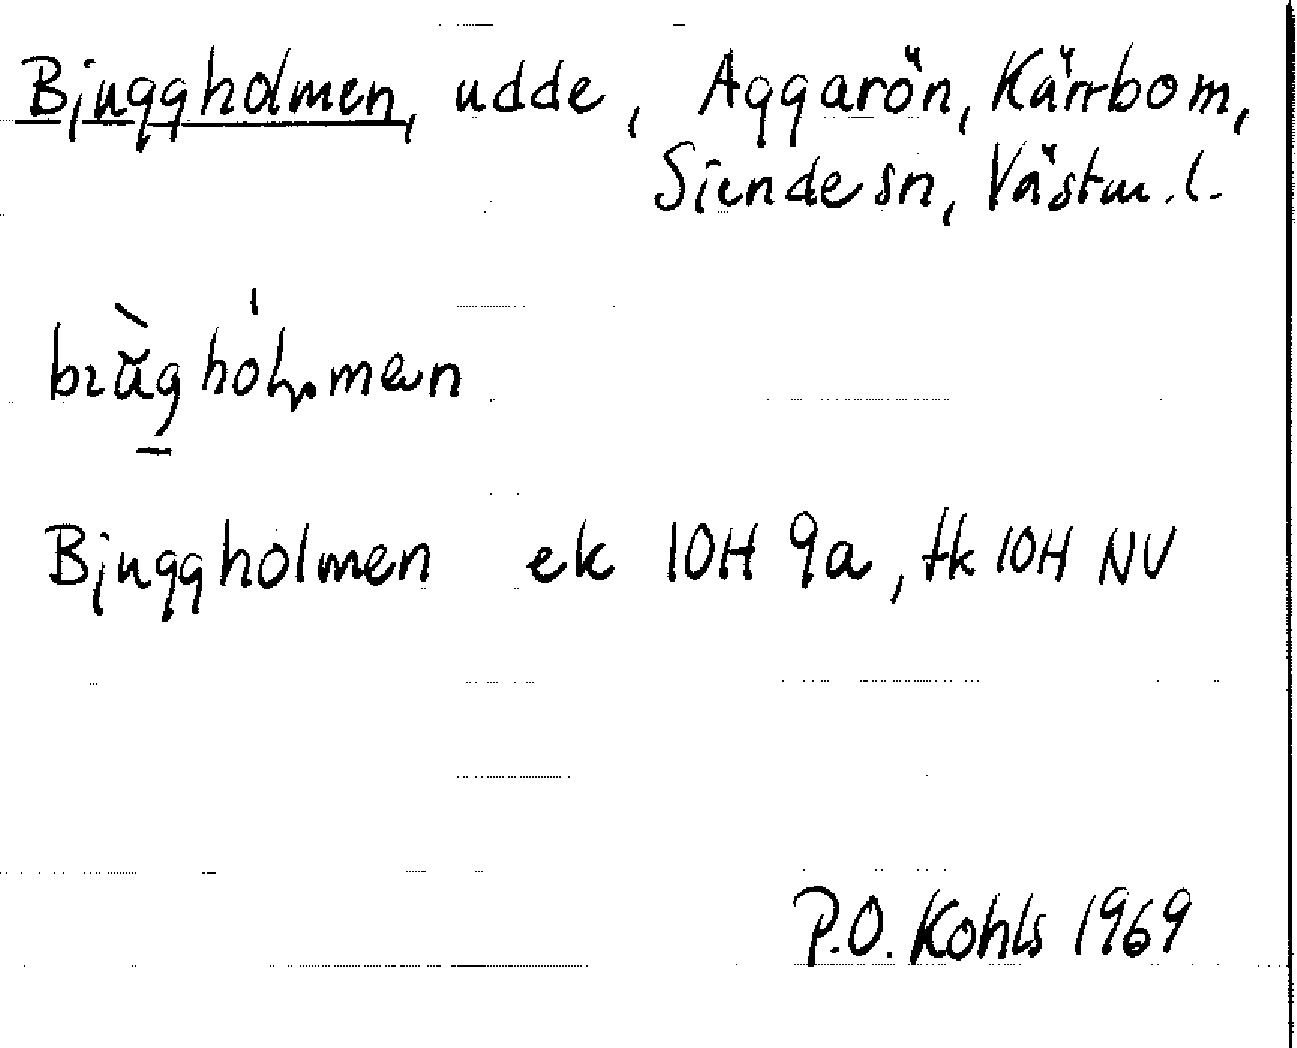 Bjuggholmen, udde, Aggarön, Kärrbom,
Siende sn, Västm.l.
Bjuggholmen ek 10H 9a, tk 10H NV
P.O. Kohls 1969